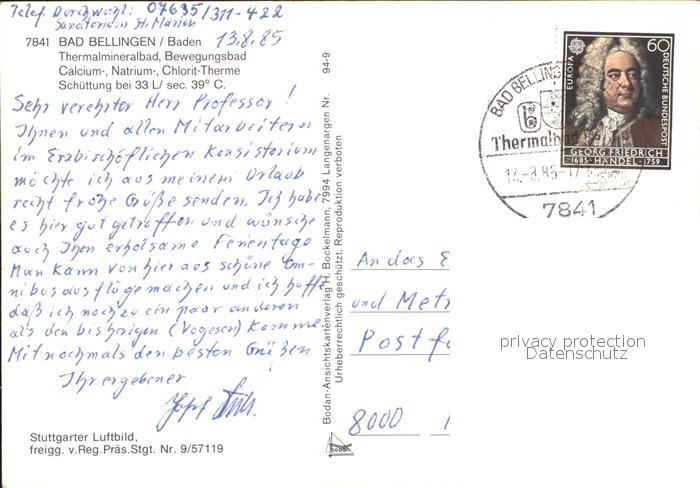 Telef. Durchwahl: 07635/311-422
Sanatorium St. Marien
13.8.85
7841 BAD BELLINGEN / Baden
Thermalmineralbad, Bewegungsbad
Calcium-, Natrium-, Chlorit-Therme
Schüttung bei 33 L/ sec. 39° C.
Sehr verehrter Herr Professor !
Ihnen und allen Mitarbeitern
im Erzbischöflichen Konsistorium
möchte ich aus meinem Urlaub
recht frohe Grüße senden. Ich habe
es hier gut getroffen und wünsche
auch Ihnen erholsame Ferientage
Man kann von hier aus schöne Om-
nibusausflüge machen und ich hoffe
daß ich noch zu ein paar anderen
als den bisherigen (Vogesen) komme
Mit nochmals den besten Grüßen
Ihr ergebener
Stuttgarter Luftbild,
freigg. v.Reg.Präs.Stgt. Nr. 9/57119
94-9
Bodan-Ansichtskartenverlag H. Bockelmann, 7994 Langenargen Nr.
Urheberrechtlich geschützt. Reproduktion verboten
bodan
BAD BELLING
Thermalba
14.-8.85-17
7841
EUROPA
60
DEUTSCHE BUNDESPOST
GEORG FRIEDRICH
1685·HÄNDEL·1759
An das E
und Metr
Postf
8000
privacy protection
Datenschutz